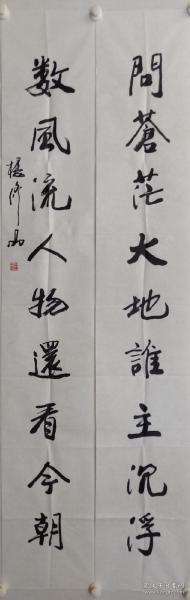 問蒼茫大地誰主沉浮
数風流人物還看今朝